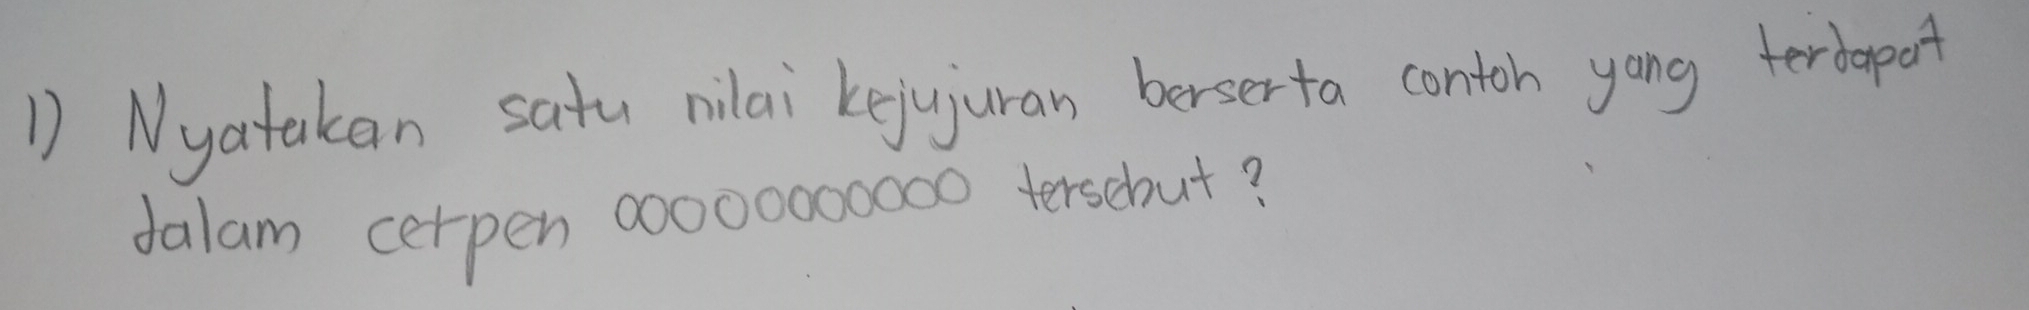 1) Nyatakan satu nilai kejujuran berserta contoh yang terdapat
dalam cerpen 00000000000 tersebut?